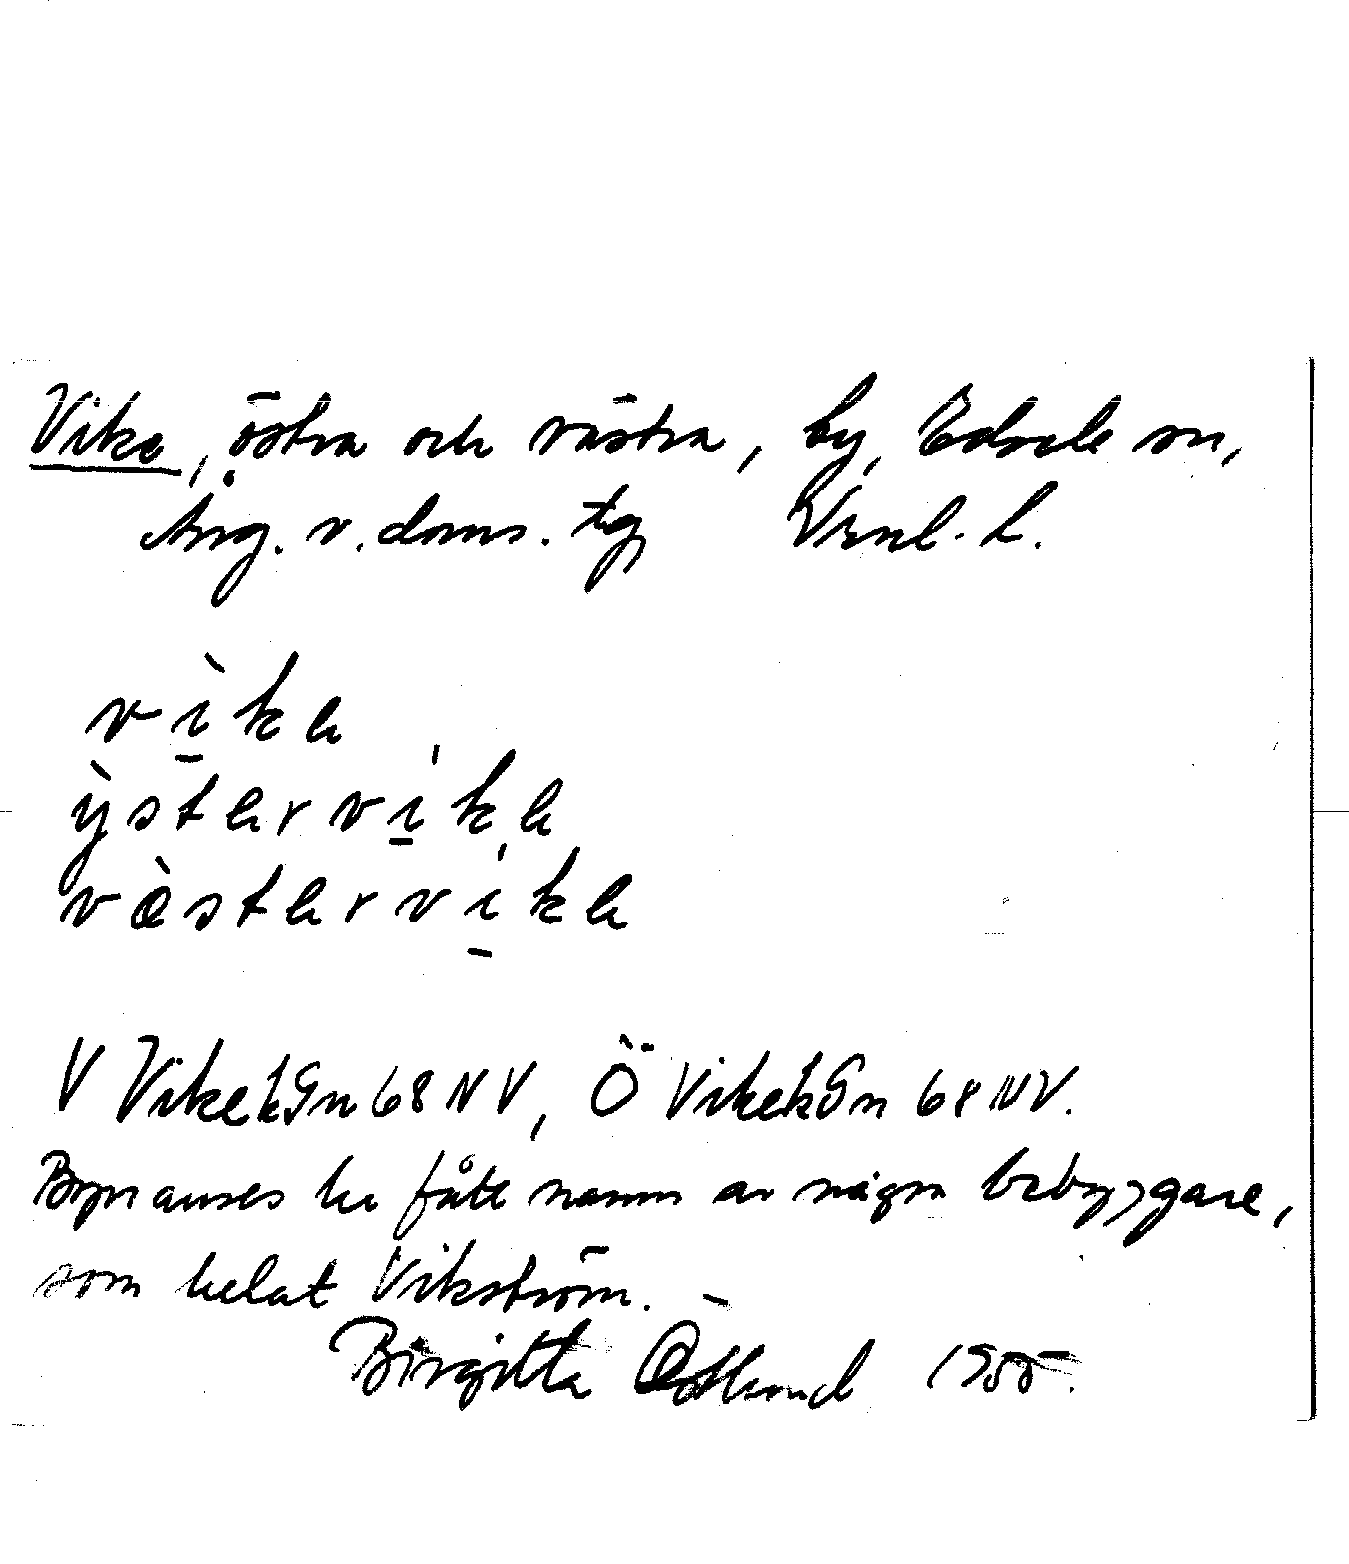 Vike, östra och västra, by, Edsele sn,
Ång. v. doms. tg Vrnl. L.
vìke
ỳstervike
væ̀stervike
V Vike ekGn 68 NV, Ö Vike ekGn 68 NV.
Byn anses ha fått namn av några bebyggare,
som hetat Vikström. –
Birgitta Östlund 1955.